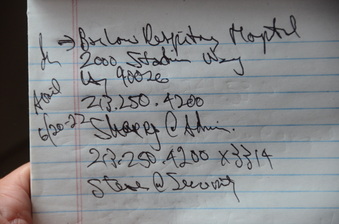 → Barlow Respiratory Hospital
2000 Stadium Way
LA 90026
213.250.4200
6/20.22
@ Admin.
213.250.4200 x3314
Steve @ Security